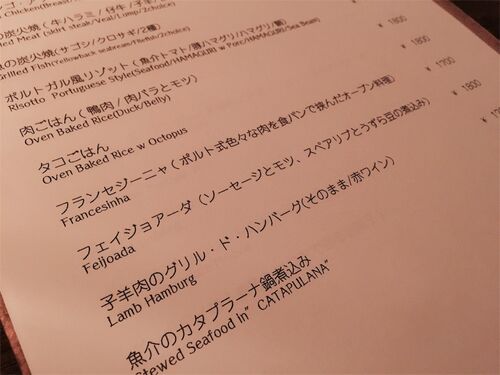 の炭火焼(牛ハラミ / 仔牛 / 子羊/
lled Meat (skirt steak/Veal/Lump/2choice)
の炭火焼(サゴシ/クロサギ/2種)
¥ 1800
ポルトガル風リゾット(魚介トマト/豚ハマグリ/ハマグリ/鴨)
Risotto Portuguese Style(Seafood/HAMAGURI w Porc/HAMAGURI/Sea Bean)
¥ 1800
肉ごはん(鴨肉 / 肉バラとモツ)
Oven Baked Rice(Duck/Belly)
¥ 1200
タコごはん
Oven Baked Rice w Octopus
¥ 1700
フランセジーニャ(ポルト式色々な肉を食パンで挟んだオーブン料理)
Francesinha
¥ 1800
フェイジョアーダ(ソーセージとモツ、スペアリブとうずら豆の煮込み)
Feijoada
子羊肉のグリル・ド・ハンバーグ(そのまま/赤ワイン)
Lamb Hamburg
魚介のカタプラーナ鍋煮込み
Stewed Seafood In" CATAPULANA"